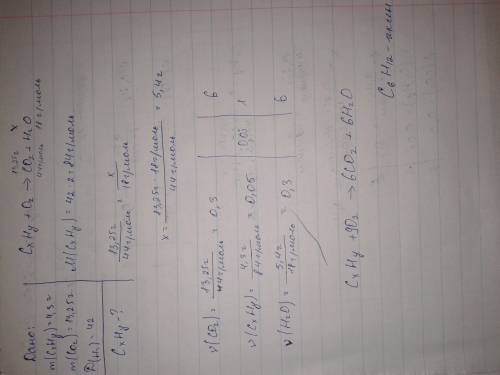 Дано:
m(CxHy)=4,3г
m(CO₂)=13,25г
D(H₂)=42
CxHy-?
13,25г x
CxHy + O₂ → CO₂ + H₂O
44г/моль 18г/моль
M(CxHy)=42·2=84г/моль
13,25г/44г/моль = x/18г/моль
x = 13,25г·18г/моль/44г/моль = 5,4г
ν(CO₂) = 13,25г/44г/моль = 0,3 | | 6
ν(CxHy) = 4,3г/84г/моль = 0,05 | :0,05 | 1
ν(H₂O) = 5,4г/18г/моль = 0,3 | | 6
CxHy + 9O₂ → 6CO₂ + 6H₂O